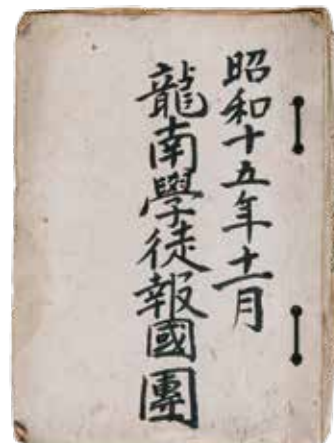 昭和十五年十一月
龍南學徒報國團